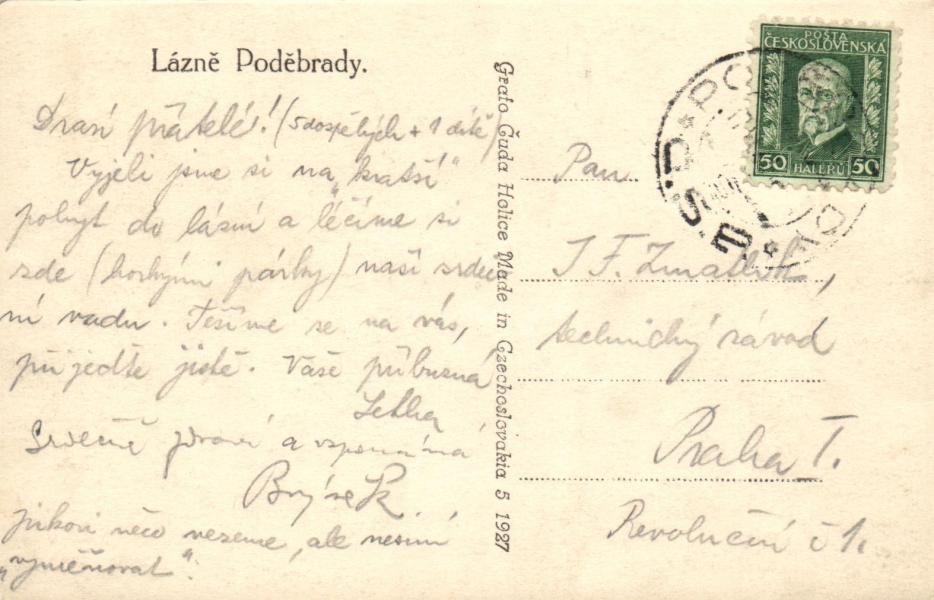 Lázně Poděbrady.
Drazí přátelé! (5 dospělých + 1 dítě)
Vyjeli jsme si na "kratší"
pobyt do lázní a léčíme si
zde (horkými párky) naší srdeč
ní vadu. Těšíme se na vás,
přijeďte jistě. Vaše příbuzná
Srdečně zdraví a vzpomíná
Jirkovi něco vezeme, ale nesmí
"vyměňovat".
Grafo Čuda Holice Made in Czechoslovakia 5 1927
POŠTA
ČESKOSLOVENSKÁ
50 HALÉŘŮ 50
Pan
J F.
technický závod
Praha I.
Revoluční č 1.